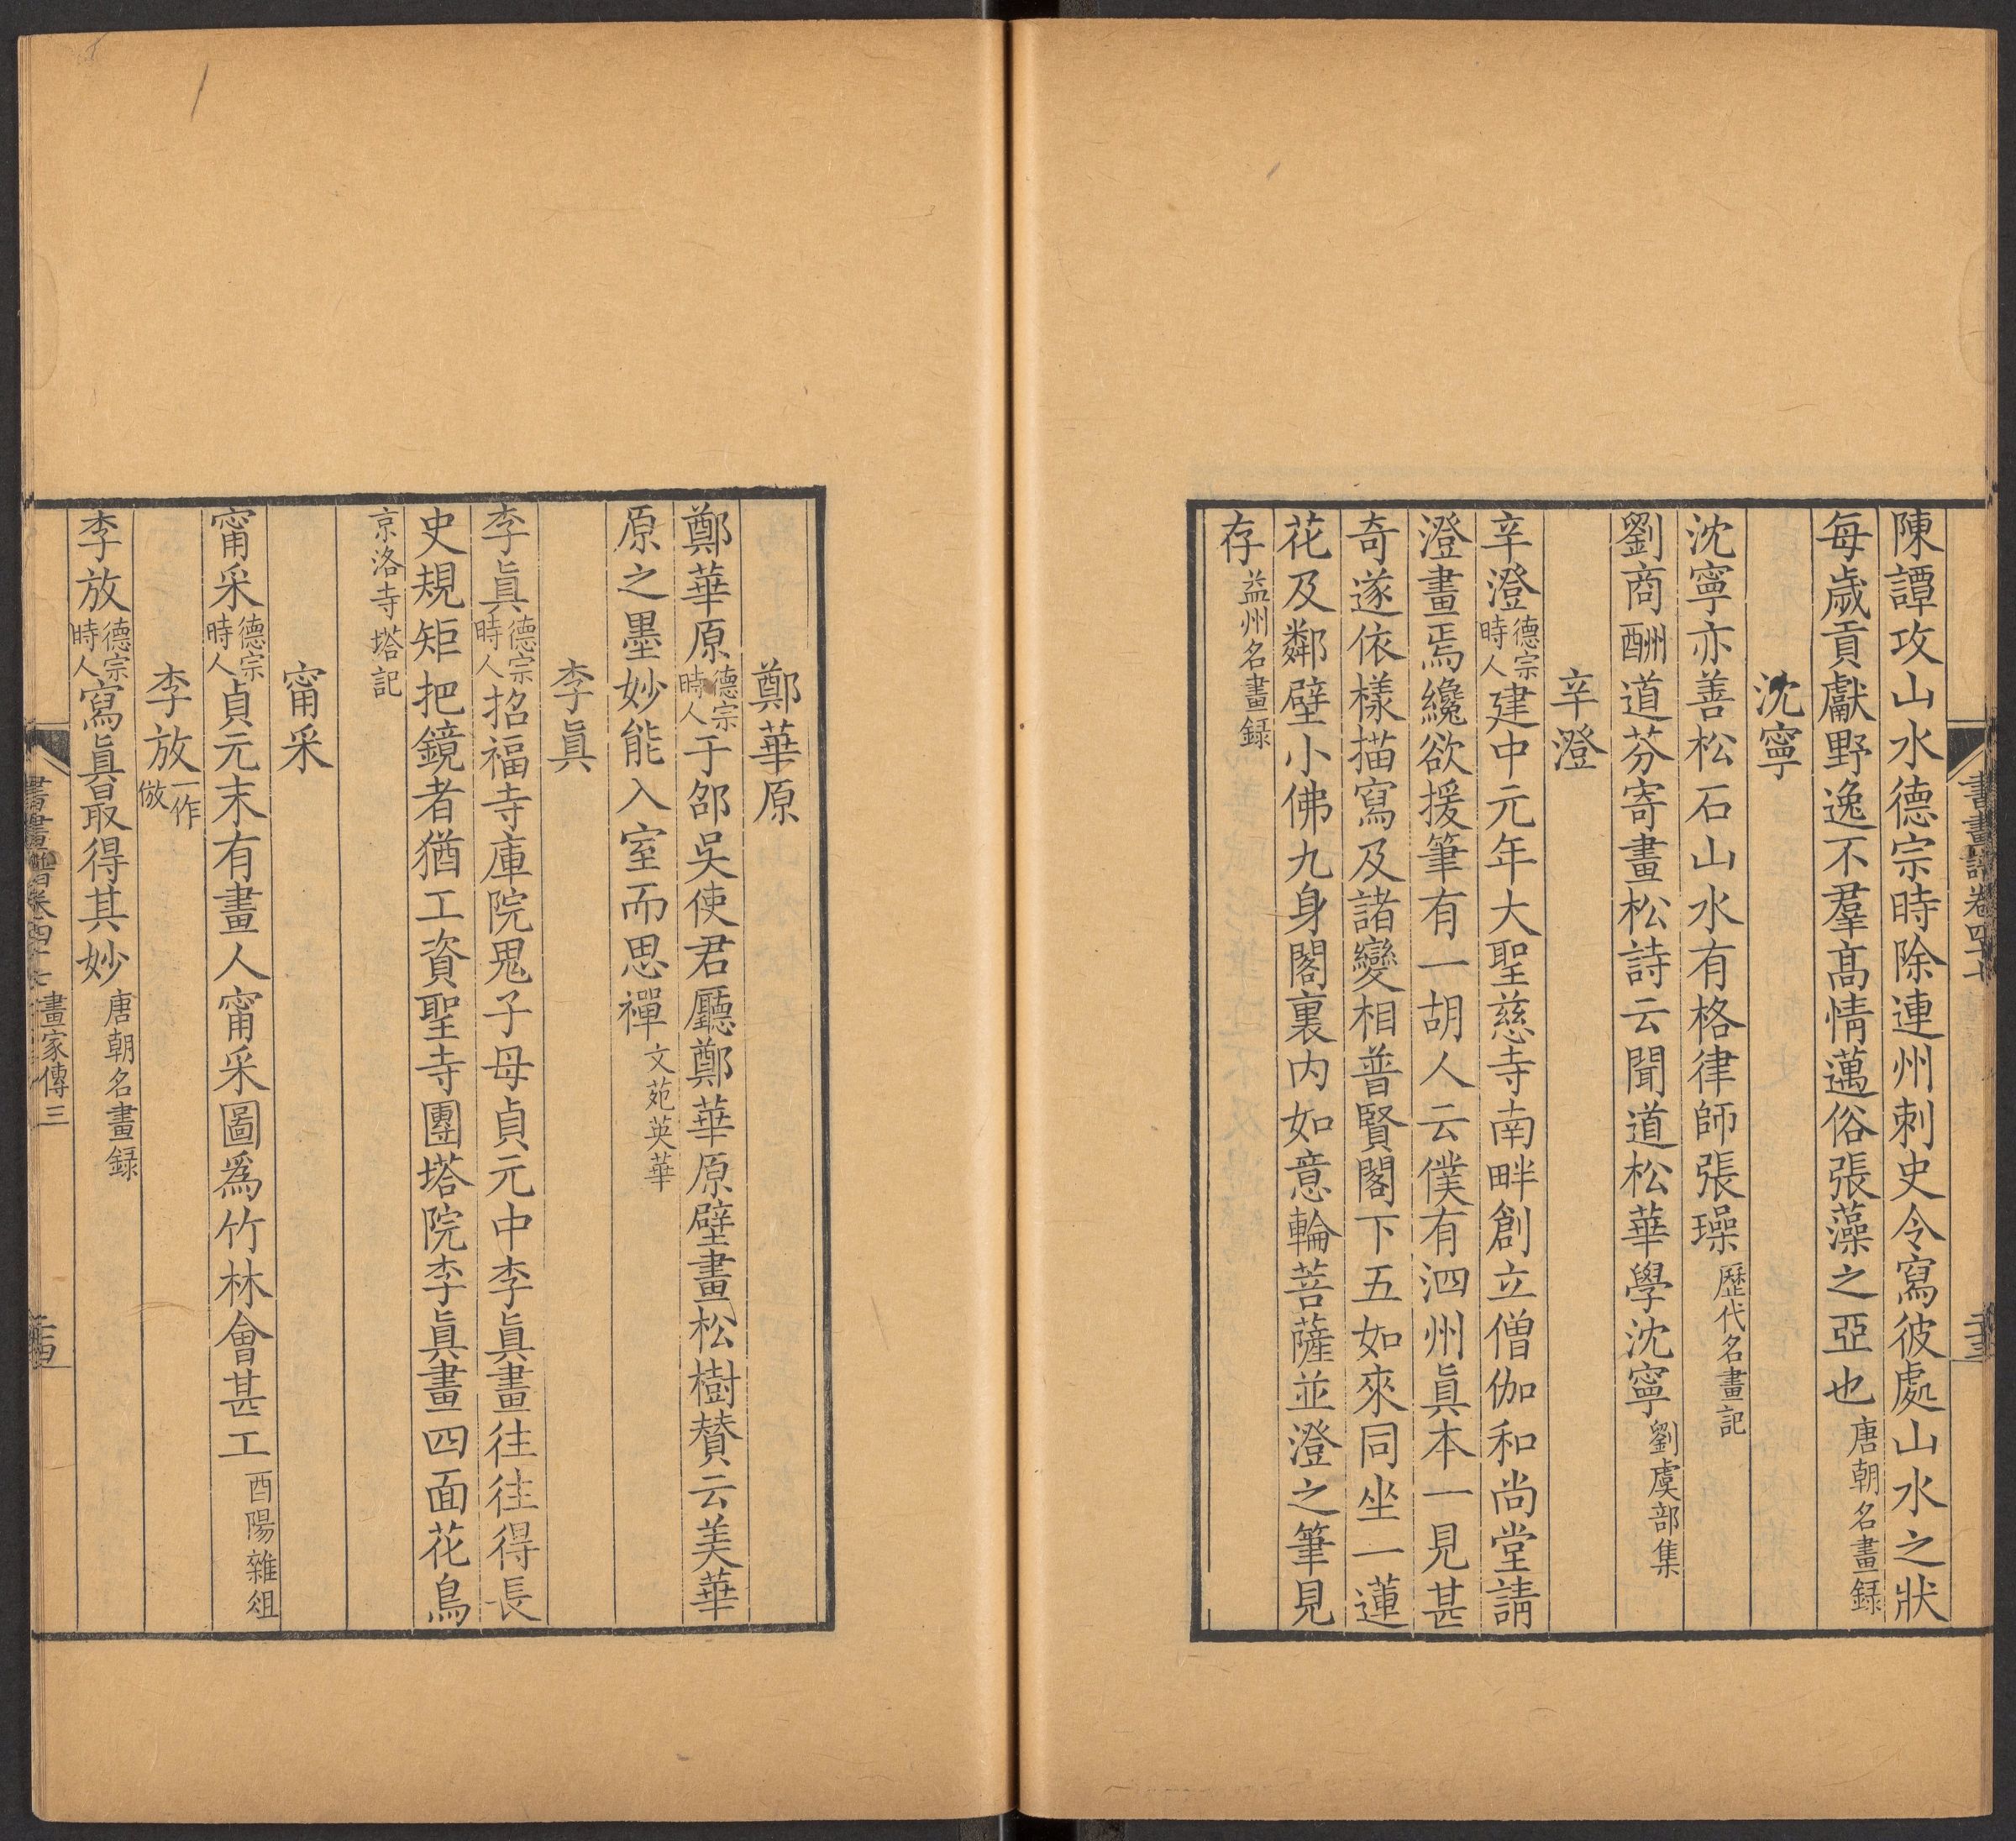 陳譚攻山水德宗時除連州刺史令寫彼處山水之狀
每歲貢獻野逸不羣高情邁俗張藻之亞也唐朝名畫録
沈寧
沈寧亦善松石山水有格律師張璪歷代名畫記
劉商酬道芬寄畫松詩云聞道松華學沈寧劉虞部集
辛澄
辛澄德宗時人建中元年大聖慈寺南畔創立僧伽和尚堂請
澄畫焉纔欲援筆有一胡人云僕有泗州眞本一見甚
奇遂依樣描寫及諸變相普賢閣下五如來同坐一蓮
花及鄰壁小佛九身閣裏内如意輪菩薩並澄之筆見
存益州名畫録
鄭華原
鄭華原德宗時人于邵吳使君廳鄭華原壁畫松樹賛云美華
原之墨妙能入室而思禪文苑英華
李眞
李眞德宗時人招福寺庫院鬼子母貞元中李眞畫往往得長
史規矩把鏡者猶工資聖寺團塔院李眞畫四面花鳥
京洛寺塔記
甯采
甯采德宗時人貞元末有畫人甯采圖爲竹林會甚工酉陽雜俎
李放一作倣
李放德宗時人寫眞最得其妙唐朝名畫録
畫家傳三